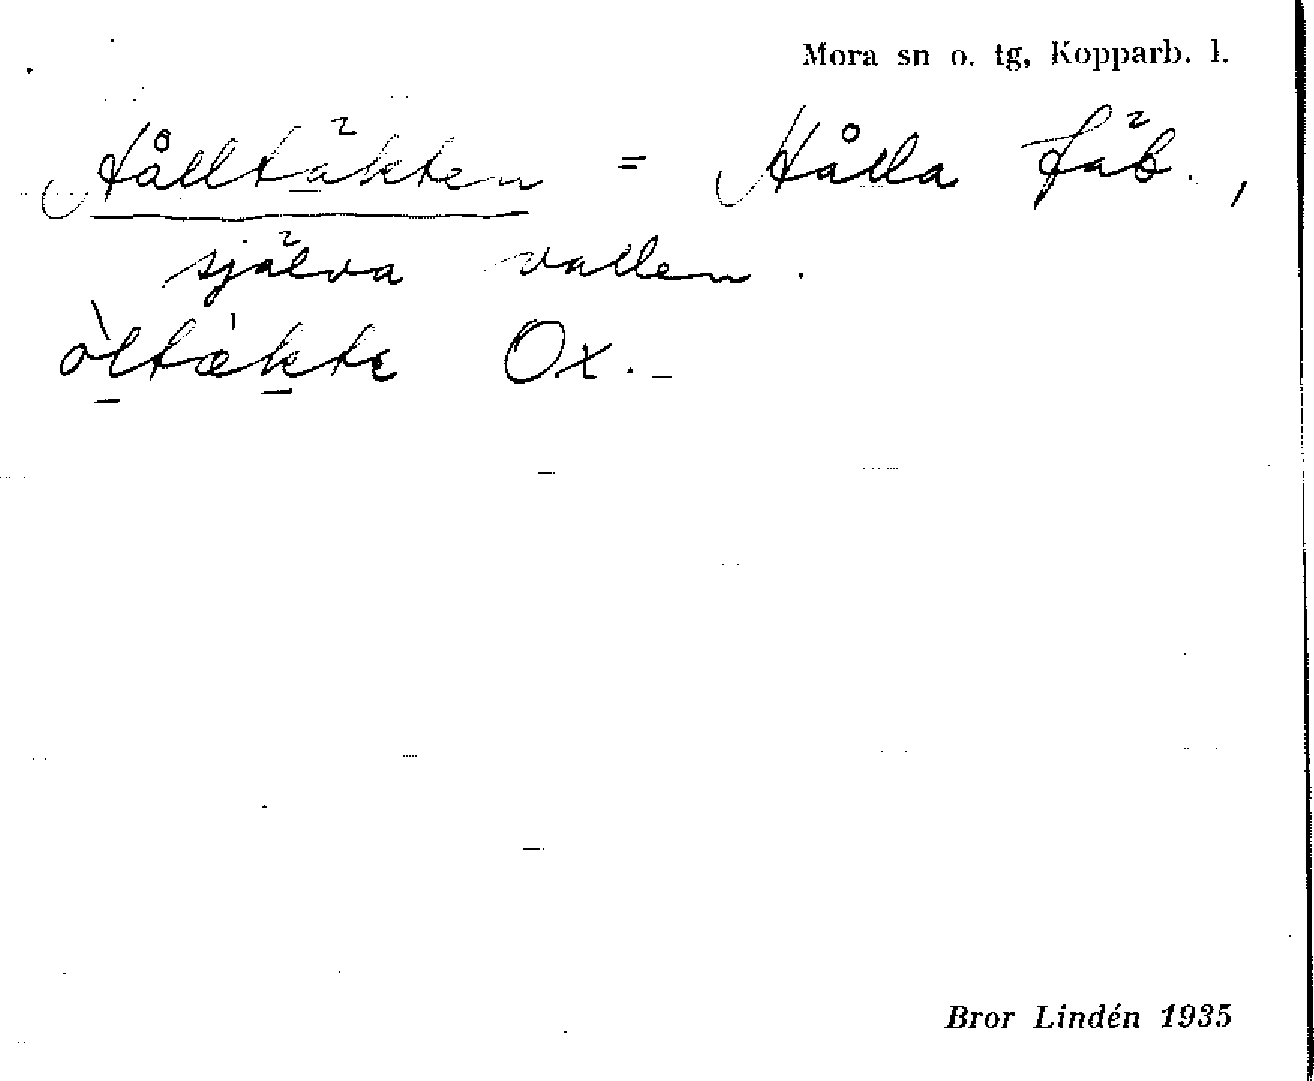 Mora sn o. tg, Kopparb. l.
Hålltäkten = Hålla fäb.,
själva vallen.
òltækte Ox.
Bror Lindén 1935